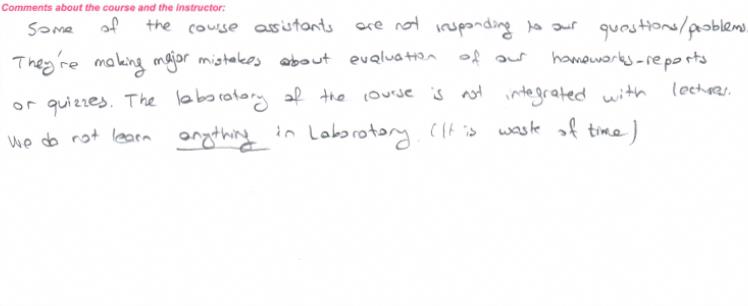 Comments about the course and the instructor:
Some of the course assistants are not responding to our questions/problems.
They're making major mistakes about evaluation of our homeworks-reports
or quizzes. The laboratory of the course is not integrated with lectures.
We do not learn anything in Laboratory. (It is waste of time)